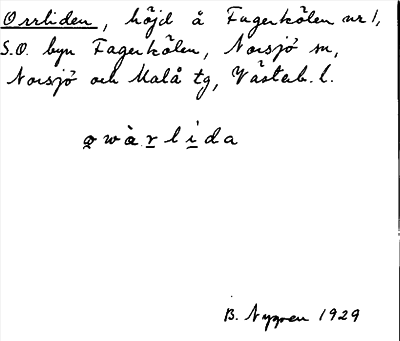 Orrliden, höjd å Fagerkölen nr 1,
S.O. byn Fagerkölen, Norsjö sn,
Norsjö och Malå tg, Västerb. l.
o̲wàr̲li̲da
B. Nygren 1929